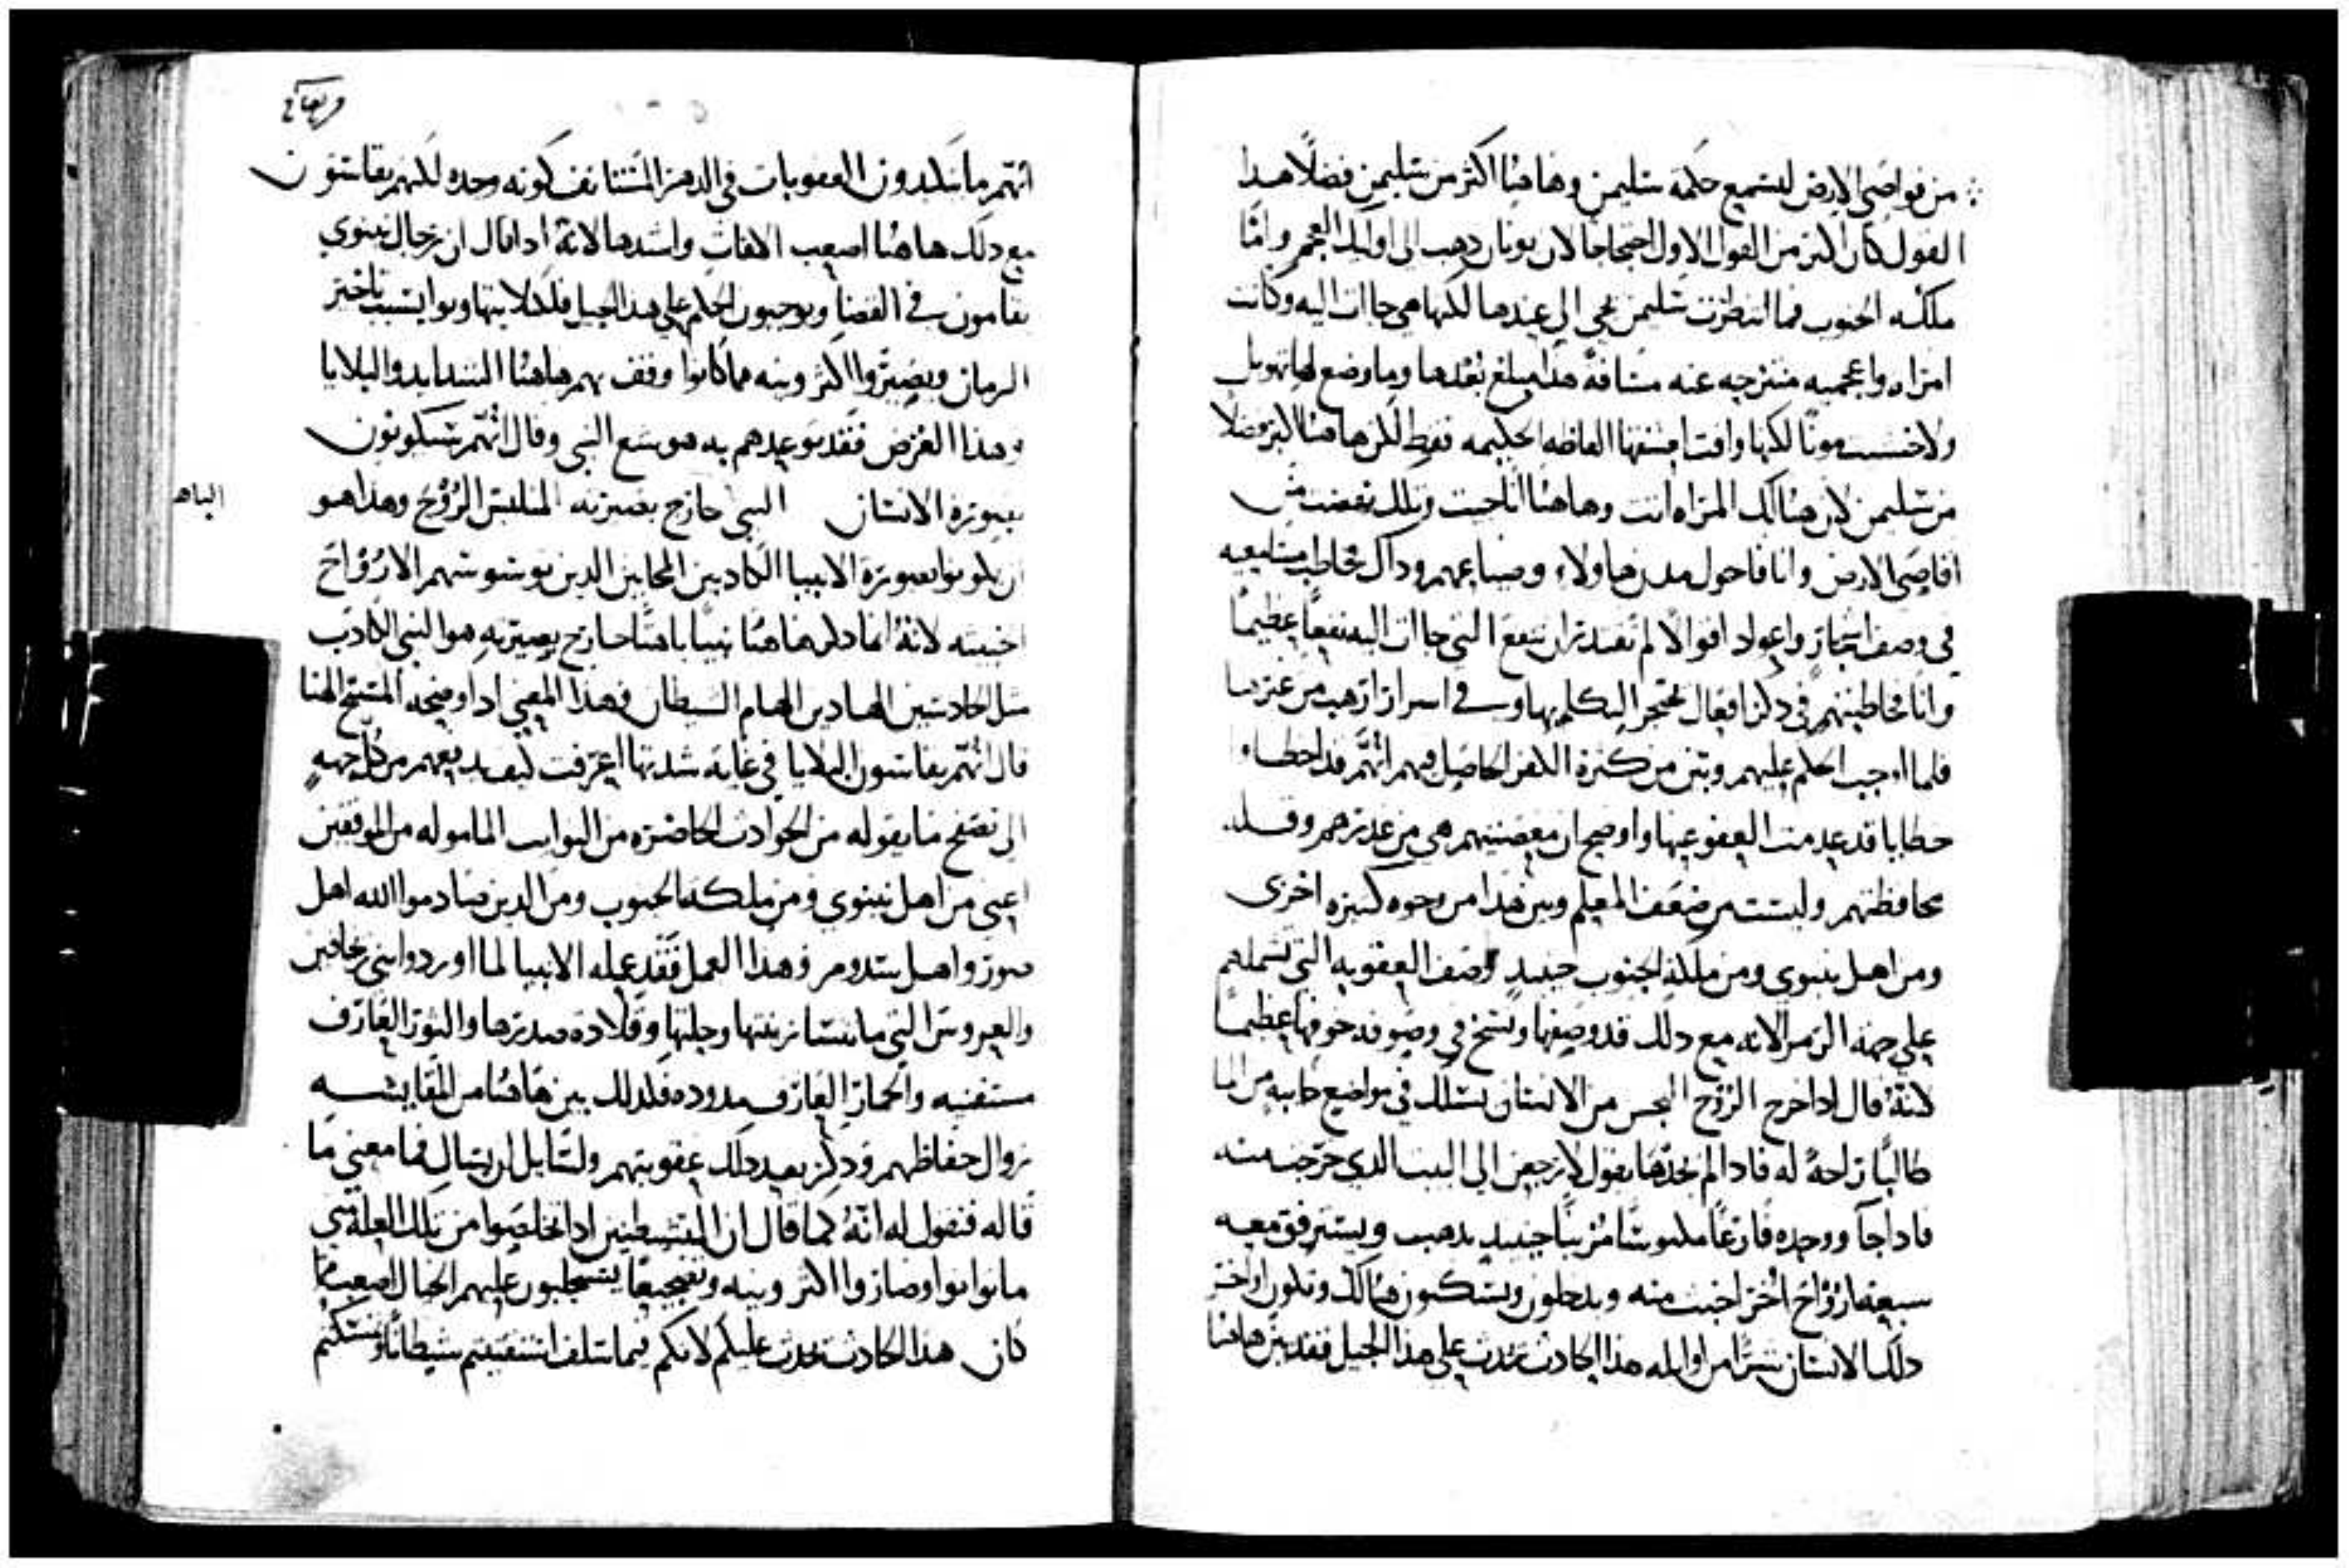 من قواصي الارض لتسمع حكمة سليمن وهاهنا اكثر من سليمن فضلًا هدا
القول كان اكثر من القول الاول احتجاجا لان يونان دهب الى اوليك العجم واما
ملكه الجنوب فما انتظرت سليمن يجي الي عندها لكنها هي جاات اليه وكانت
امراه واعجميه منتزحه عنه مسافة هدا مبلغ بعدها وما وضع لها تهويل
ولا خشيت موتا لكنها وافت لعشقها الفاظه الحكيمه فقط لكن هاهنا اكثر فضلا
من سليمن لان هنالك المراه اتت وهاهنا انا جيت وتلك نهضت من
اقاصي الارض وانا فاحول مدن هاولاء وضياعهم وداك خاطب سامعيه
في وصف اشجار واعواد اقوالا لم تقدر ان تنفع التي جاات اليه نفعًا عظيمًا
وانا فخاطبتهم في دكر افعال يحتجز التكلم بها وفي اسرار ارهب من غيرها
فلما اوجب الحكم عليهم وبين من كثرة الكفر الحاصل فيهم انهم قد اخطاوا
خطايا قد عدمت العفو عنها واوضح ان معصيتهم هي من غدرهم وقله
محافظتهم وليست من ضعف المعلم وبين هدا من وجوه كثيره اخرى
ومن اهل نينوى ومن ملكة الجنوب حينيد وصف العقوبه التي تشملهم
علي جهه الرمز الا انه مع دلك قد وصفها ونسج في وصفه خوفها عظيمًا
لانهُ قال ادا خرج الروح النجس من الانسان يسلك في مواضع خايبه من الما
طالبًا راحةً له فادا لم يجدها يقول لارجعن الي البيت الدي خرجت منه
فادا جآ ووجده فارغًا مكنوسًا مزينًا حينيد يدهب ويسترفق معه
سبعة ارواح اخر اخبث منه ويدخلون ويسكنون هنالك وتكون اواخر
دلك الانسان شرًا من اوايله هدا الحادث يحدث علي هدا الجيل فقد بين هاهنا
انهم ما يكبدون العقوبات في الدهر المستانف كونه وحده لكنهم يقاسون
مع دلك هاهنا اصعب الافات واشدها لانه ادا قال ان رجال نينوي
يقامون في القضا ويوجبون الحكم علي هدا الجيل فلكيلا يتهاونوا بسبب تاخير
الزمان ويصيروا اكثر ونيه مما كانوا وقف بهم هاهنا الشدايد والبلايا
وهدا الغرض فقد توعدهم به هوشع النبي وقال انهم سيكونون
بصورة الانسان النبي خارج بصيرته المتلبس الروح وهدا هو
الباهـ
ان يكونوا بصورة الانبيا الكادبين المجانين الدين توسوسهم الارواح
الخبيثه لانهُ انما دكر هاهنا نبيًا باهتًا خارج بصيرته هو النبي الكادب
مثل الحادسين الهادين الهام الشيطان فهدا المعني ادا اوضحه المسيح الهنا
قال انهم يقاسون البلايا في غاية شدتها اعرفت كيف يدفعهم من كل جهةٍ
الي تصفح ما يقوله من الحوادث الحاضره من النوايب الماموله من الموفقين
اعني من اهل نينوي ومن ملكة الجنوب ومن الدين صادموا الله اهل
صور واهل سدوم وهدا العمل فقد عمله الانبيا لما اوردوا بني رخابين
والعروس التي ما تنسا زينتها وحليتها وقلادة صدرها والثور العارف
مقتنيه والحمار العارف مدوده فلدلك بين هاهنا من المقايسه
زوال حفاظهم ودكر بعد دلك عقوبتهم ولسايل ان يسال فما معني ما
قاله فنقول له انهُ كما قال ان المتشيطنين ادا تخلصوا من تلك العلة متي
ما توانوا وصاروا اكثر ونيه وتضجيعًا يستجلبون عليهم الخيال اصعب مما
كان هدا الحادث يحدث عليكم لانكم فيما سلف استقنيتم شيطانًا وسكنتم